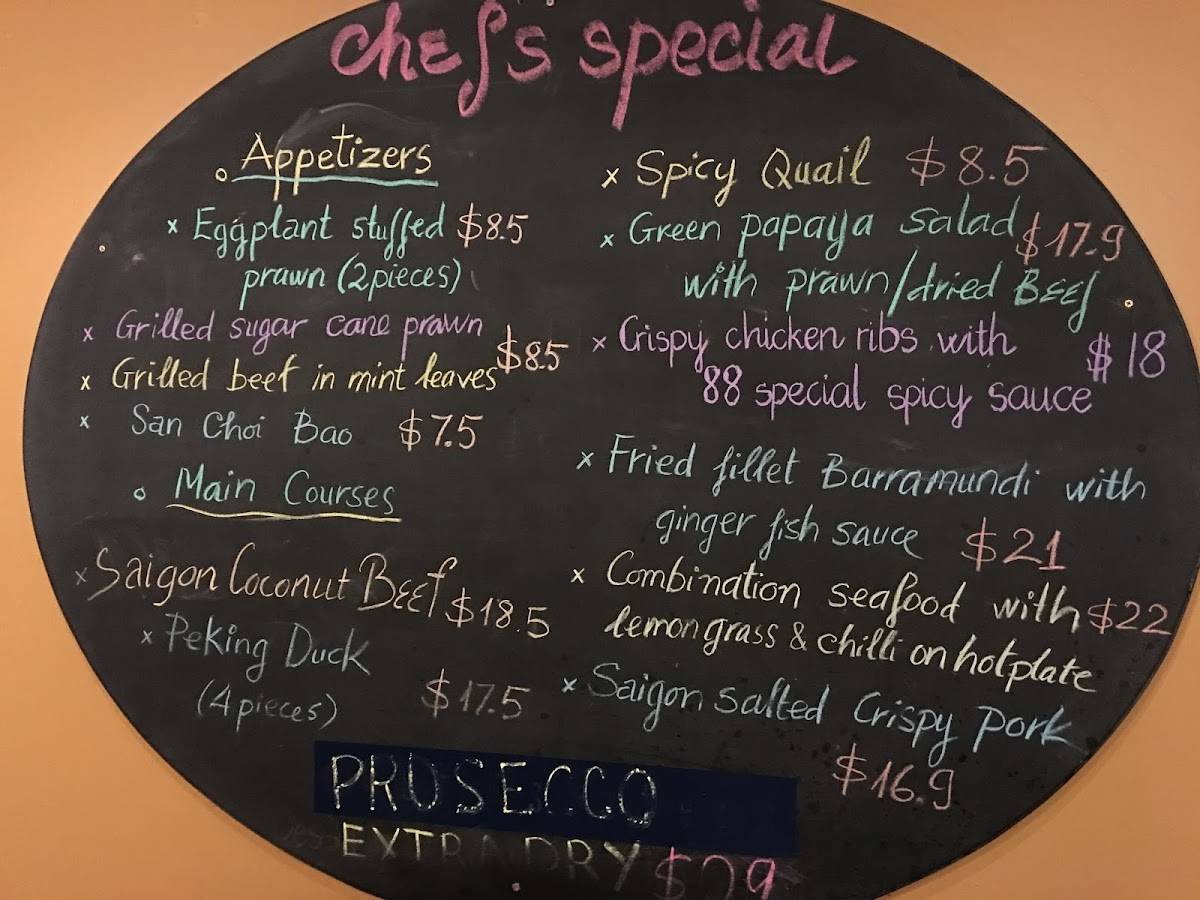 chef's special
Appetizers
x Eggplant stuffed $8.5
prawn (2pieces)
x Grilled sugar cane prawn
$8.5
x Grilled beef in mint leaves
x San Choi Bao $7.5
Main Courses
x Saigon Coconut Beef $18.5
x Peking Duck
(4pieces) $17.5
x Spicy Quail $8.5
x Green papaya salad $17.9
with prawn/dried BEEf
x Crispy chicken ribs with $18
88 special spicy sauce
x Fried fillet Barramundi with
ginger fish sauce $21
x Combination seafood with $22
lemongrass & chilli on hotplate
x Saigon salted Crispy pork
$16.9
PROSECCO
EXTRA DRY $29